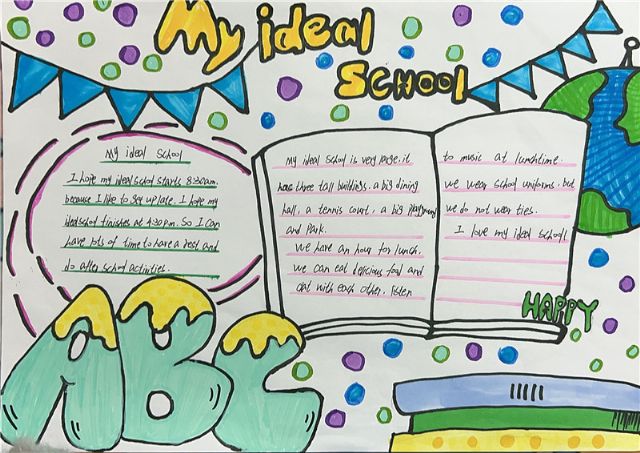 My ideal
SCHOOL
My ideal School
I hope my ideal school starts 8:30a.m.
because I like to get up late. I hope my
ideal school finishes at 4:30 p.m. So I can
have lots of time to have a rest and
do after school activities.
My ideal school is very large, it
has three tall buildings, a big dining
hall, a tennis court, a big playground
and park.
We have an hour for lunch.
we can eat delicious food and
chat with each other, listen
to music at lunchtime.
we wear school uniforms. but
we do not wear ties.
I love my ideal school!
HAPPY
ABC